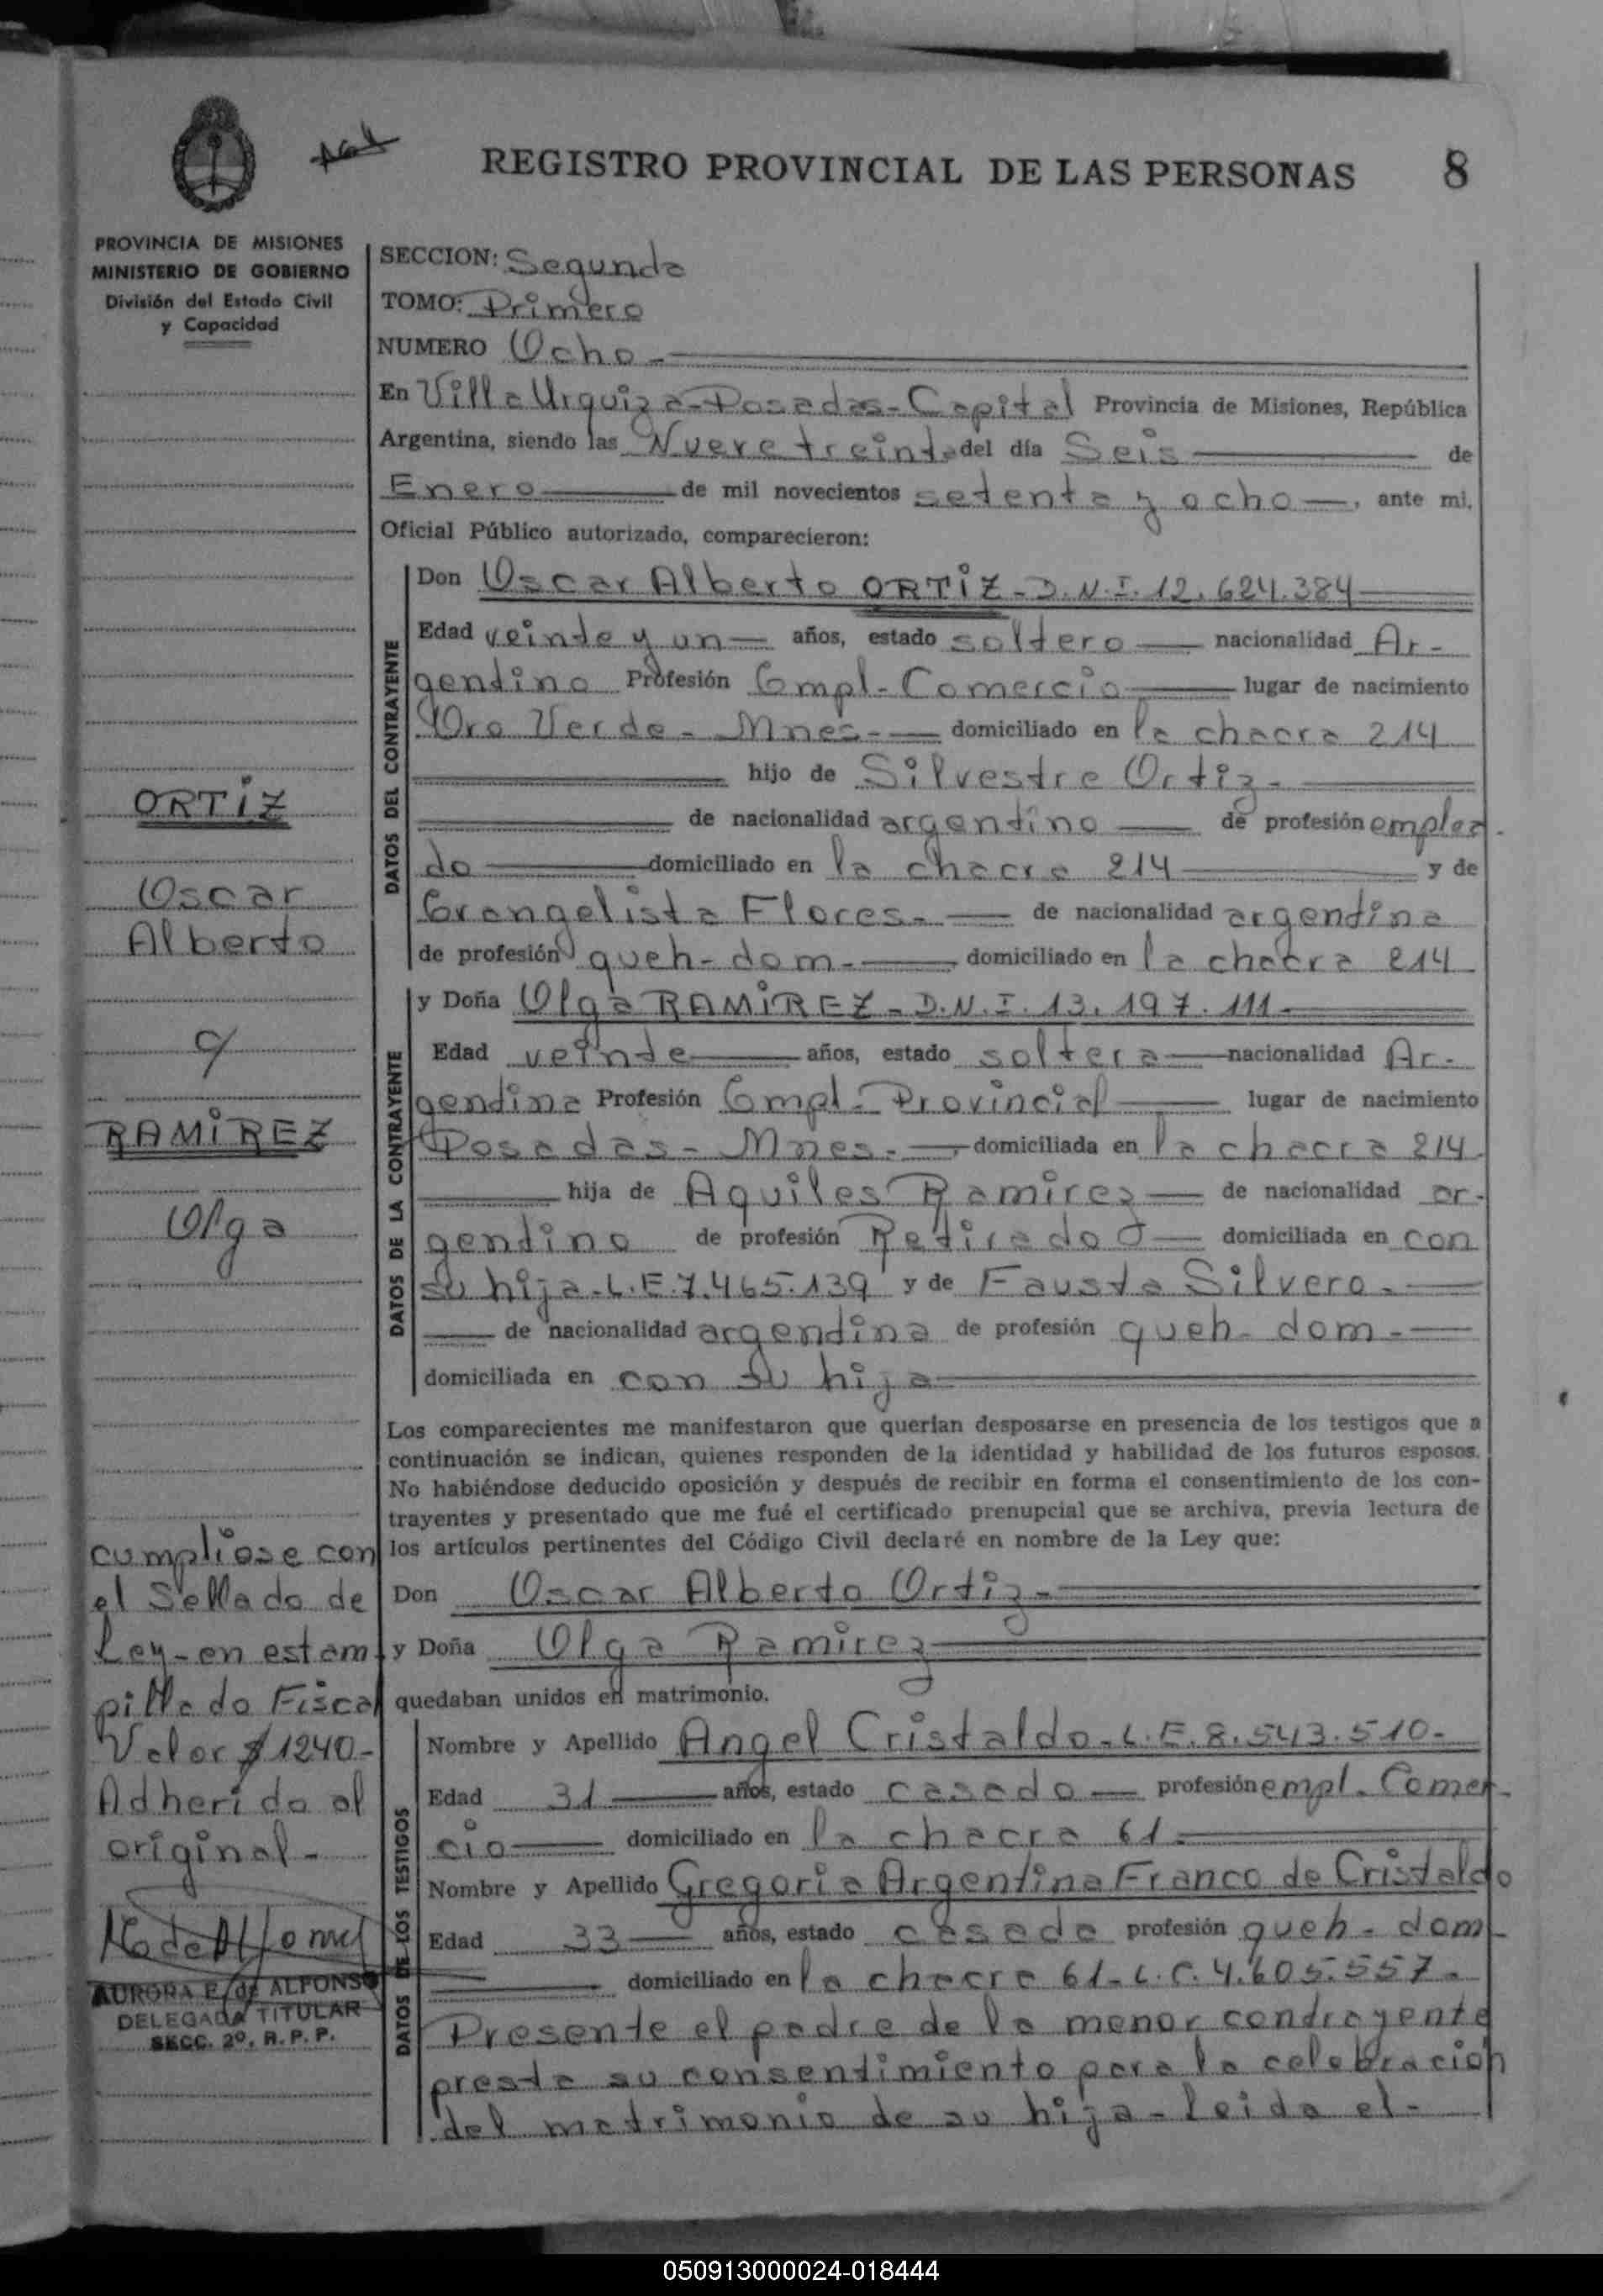 REGISTRO PROVINCIAL DE LAS PERSONAS 8
PROVINCIA DE MISIONES
MINISTERIO DE GOBIERNO
División del Estado Civil
y Capacidad
SECCION: Segunda
TOMO: Primero
NUMERO Ocho -
En Villa Urquiza - Posadas - Capital Provincia de Misiones, República
Argentina, siendo las Nueve treinta del día Seis de
Enero de mil novecientos setenta y ocho, ante mi,
Oficial Público autorizado, comparecieron:
DATOS DEL CONTRAYENTE
Don Oscar Alberto ORTIZ - D.N.I. 12.624.384
Edad veinte y un años, estado soltero nacionalidad Ar-
gentino Profesión Empl- Comercio lugar de nacimiento
Oro Verde - Mnes- domiciliado en la chacra 214
hijo de Silvestre Ortiz -
de nacionalidad argentino de profesión emplea
do domiciliado en la chacra 214 y de
Evangelista Flores - de nacionalidad argentina
de profesión queh- dom - domiciliado en la chacra 214
DATOS DE LA CONTRAYENTE
y Doña Olga RAMIREZ - D.N.I. 13.197.111 -
Edad veinte años, estado soltera nacionalidad Ar-
gentina Profesión Empl- Provincial lugar de nacimiento
Posadas - Mnes. - domiciliada en la chacra 214
hija de Aquiles Ramirez de nacionalidad ar-
gentino de profesión Retirado domiciliada en con
su hija - L.E. 7.465.139 y de Fausta Silvero -
de nacionalidad argentina de profesión queh- dom -
domiciliada en con su hija
Los comparecientes me manifestaron que querían desposarse en presencia de los testigos que a
continuación se indican, quienes responden de la identidad y habilidad de los futuros esposos.
No habiéndose deducido oposición y después de recibir en forma el consentimiento de los con-
trayentes y presentado que me fué el certificado prenupcial que se archiva, previa lectura de
los artículos pertinentes del Código Civil declaré en nombre de la Ley que:
Don Oscar Alberto Ortiz -
y Doña Olga Ramirez
quedaban unidos en matrimonio.
DATOS DE LOS TESTIGOS
Nombre y Apellido Angel Cristaldo - L.E. 8.543.510 -
Edad 31 años, estado casado profesión empl. Comer-
cio domiciliado en la chacra 61 -
Nombre y Apellido Gregoria Argentina Franco de Cristaldo
Edad 33 años, estado casada profesión queh - dom -
domiciliado en la chacra 61 - L.C. 4.605.557 -
Presente el padre de la menor contrayente
presta su consentimiento para la celebración
del matrimonio de su hija - leida el -
ORTIZ
Oscar
Alberto
c/
RAMIREZ
Olga
cumpliose con
el Sellado de
Ley - en estam
pillado Fiscal
Valor $ 1240 -
Adherido al
original -
AURORA R. de ALFONSO
DELEGADA TITULAR
SECC. 2º, R. P. P.
050913000024-018444